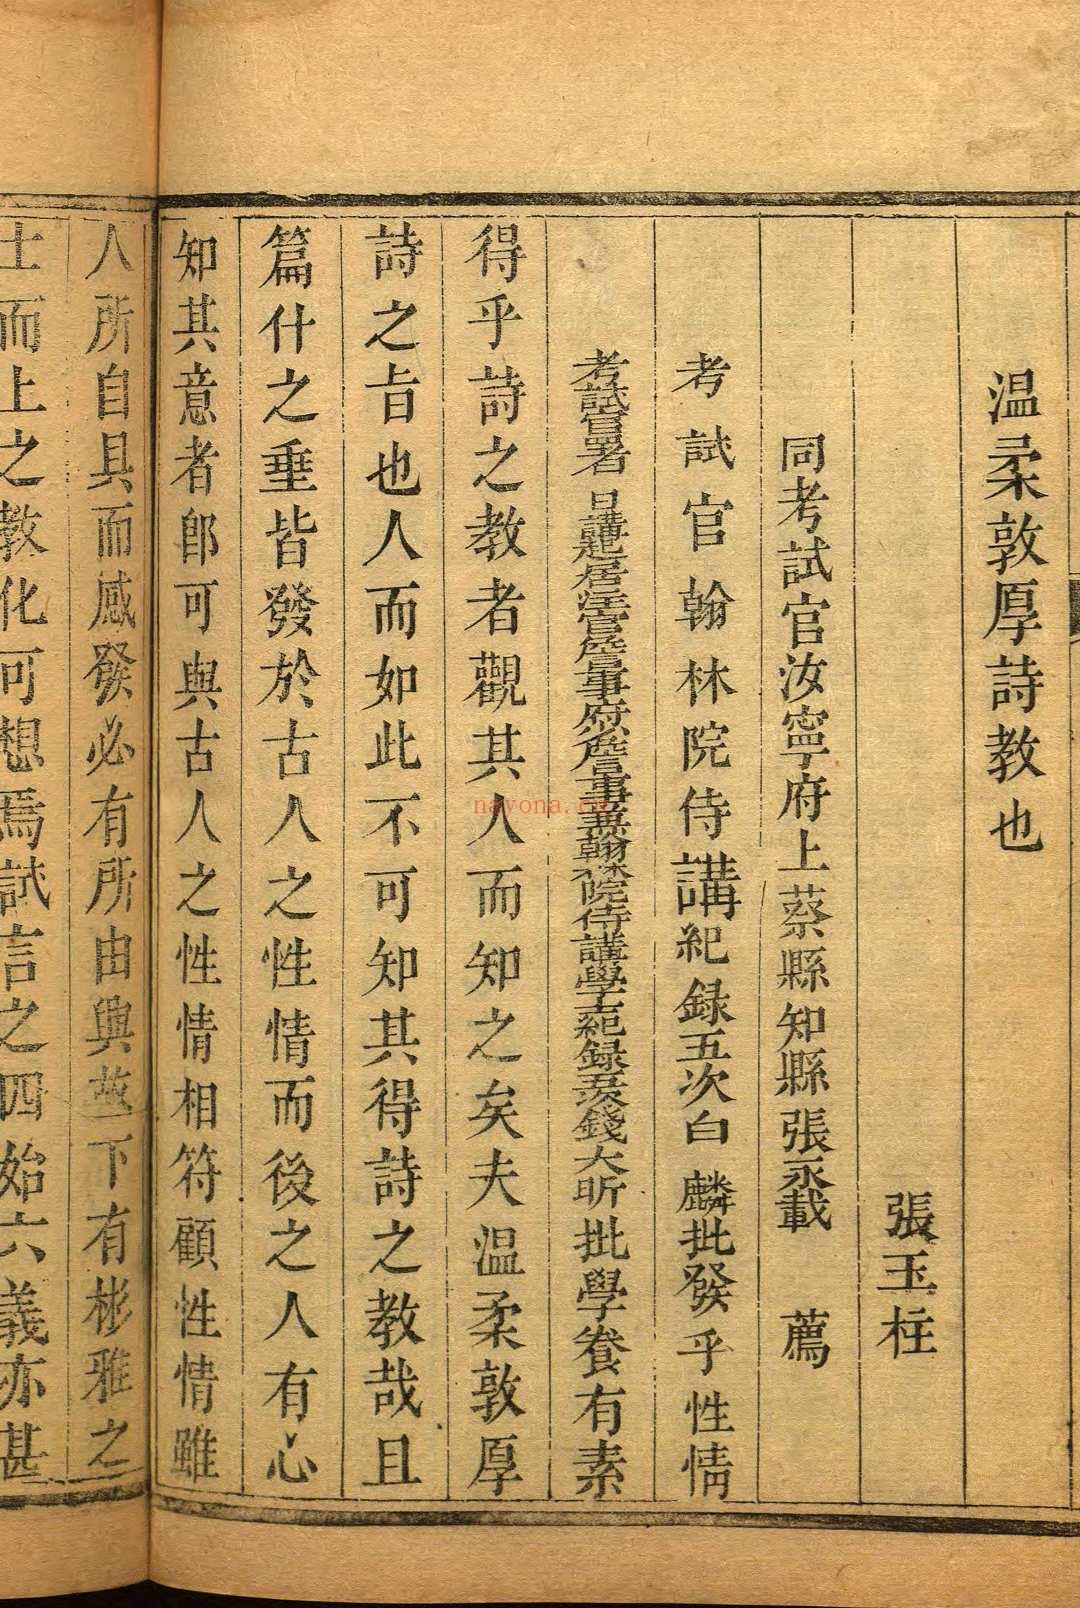 温柔敦厚詩教也
張玉柱
同考試官汝寧府上蔡縣知縣張永載　薦
考試官翰林院侍講紀録五次白麟批發乎性情
考試官署日講起居注官詹事府少詹事兼翰林院侍講學士紀録五次錢大昕批學養有素
得乎詩之教者觀其人而知之矣夫温柔敦厚
詩之㫖也人而如此不可知其得詩之教哉且
篇什之垂皆發於古人之性情而後之人有心
知其意者郎可與古人之性情相符顧性情雖
人所自具而感發必有所由興葢下有彬雅之
士而上之教化可想焉試言之四始六義亦甚
nayona.cn